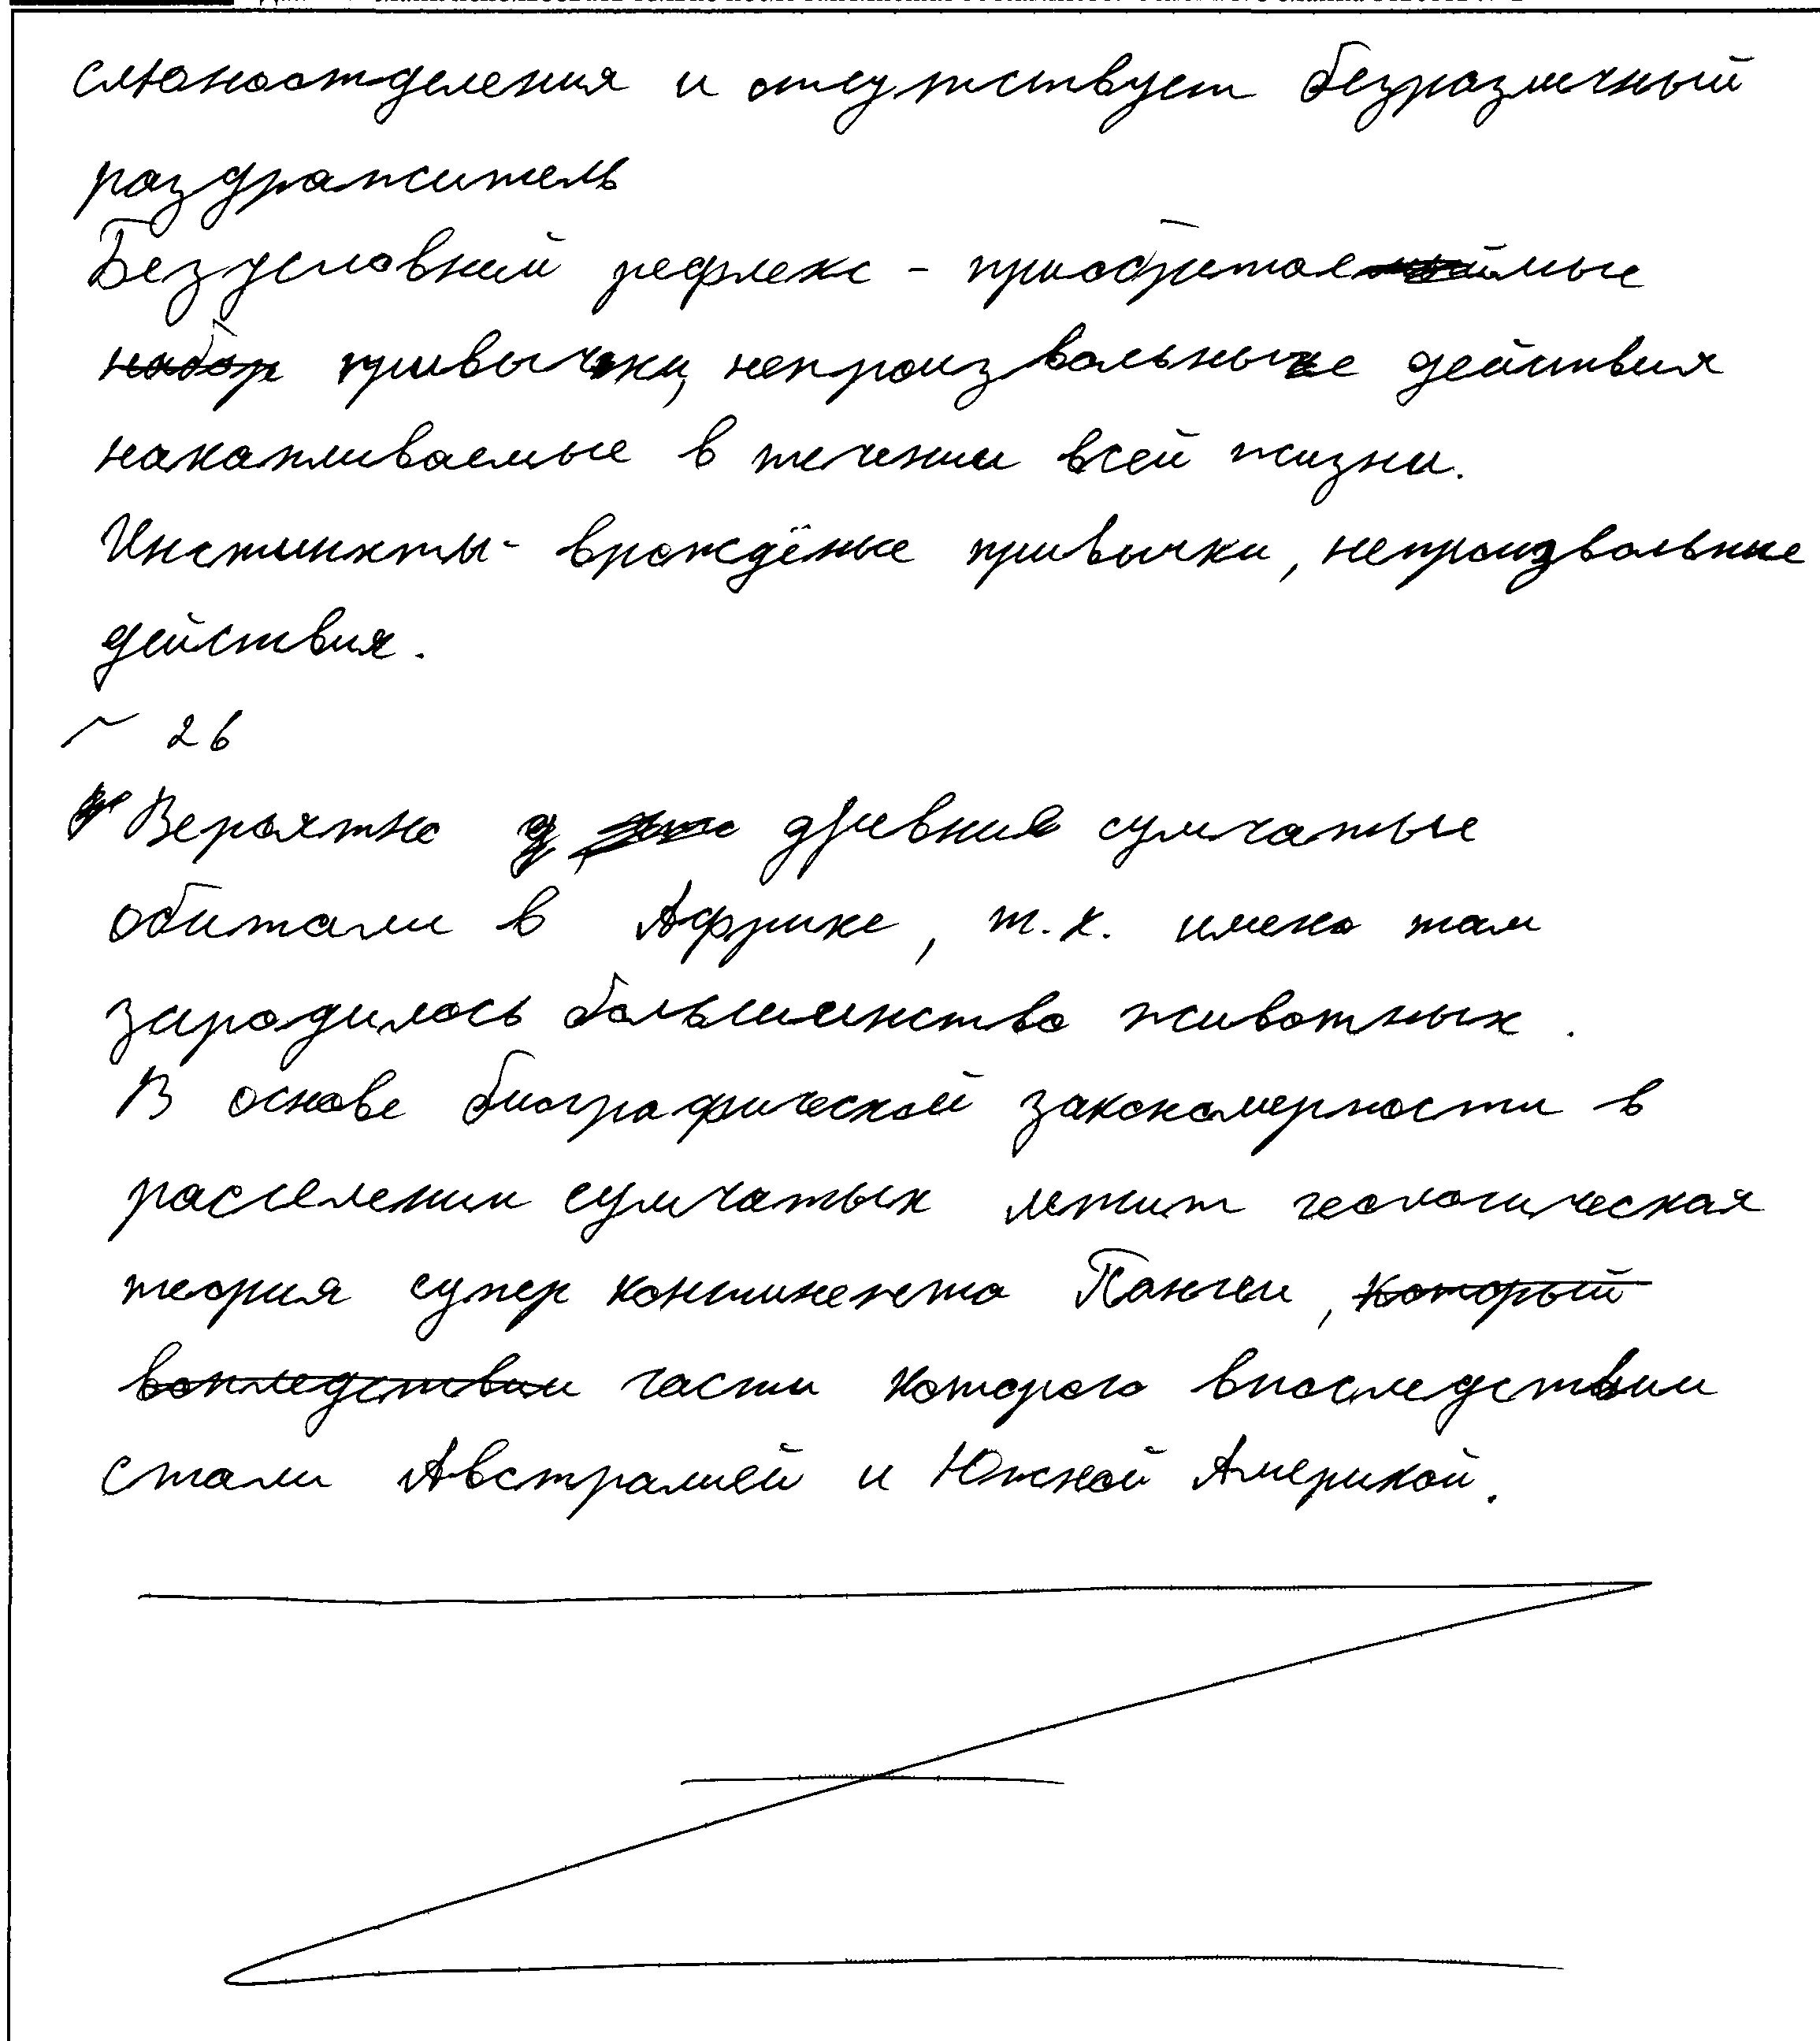 слюноотделения и отсутствует безразличный
раздражитель
Безусловний рефлекс - приобритаемые
набор привычки, непроизвольные действия
накапливаемые в течении всей жизни.
Инстинкты - врождёные привычки, непроизвольные
действия.
~ 26
Вероятно д древние сумчатые
обитали в Африке, т.к. имено там
зародилось большинство животных.
В основе биографической закономерности в
расселении сумчатых лежит геологическая
теория супер континента Пангеи, который
вопледствии части которого впоследствии
стали Австралией и Южной Америкой.